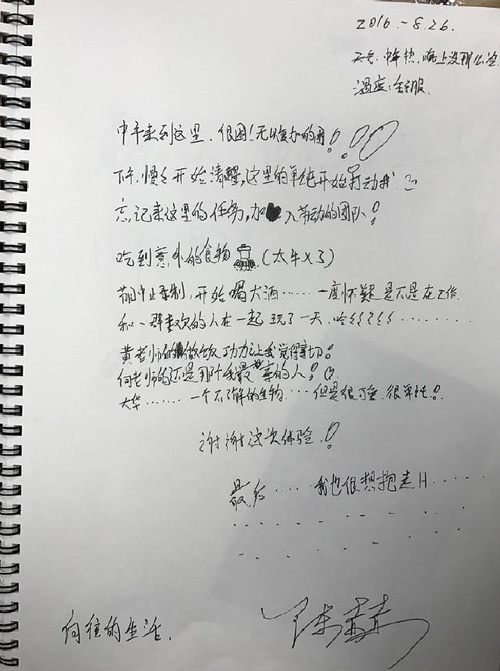 2016.-8.26.
天气：中午热，晚上没那么热
温度：舒服.
中午来到这里、很困！无以复加的困！
下午，慢慢开始清醒，这里的单纯开始打动我
忘记来这里的任务，加入劳动的团队！
吃到意外的食物（太牛×了）
节目中止录制，开始喝大酒……一度怀疑是不是在工作.
和一群喜欢的人在一起玩了一天，哈
黄老师的做饭功力让我觉得亲切！
何老师的还是那个我最喜的人！
大华……一个不了解的生物……但是很可爱，很单纯！
谢谢这次体验！
最后……我也很想抱走H……
向往的生活.
陈赫